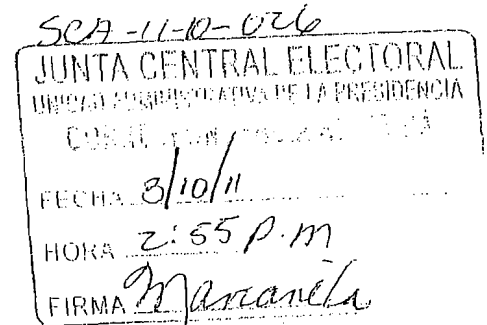 SCA-11-10-026
JUNTA CENTRAL ELECTORAL
UNIDAD ADMINISTRATIVA DE LA PRESIDENCIA
FECHA 3/10/11
HORA 2:55 P.M
FIRMA